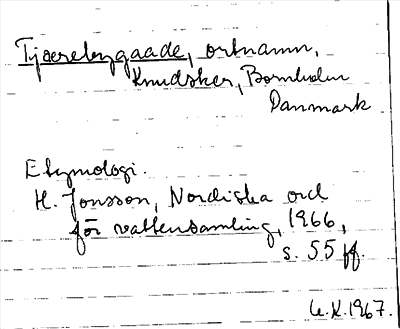 Tjærebygaade, ortnamn,
Knudsker, Bornholm
Danmark
Etymologi.
H. Jonsson, Nordiska ord
för vattensamling, 1966,
s. 55 ff.
U.K. 1967.